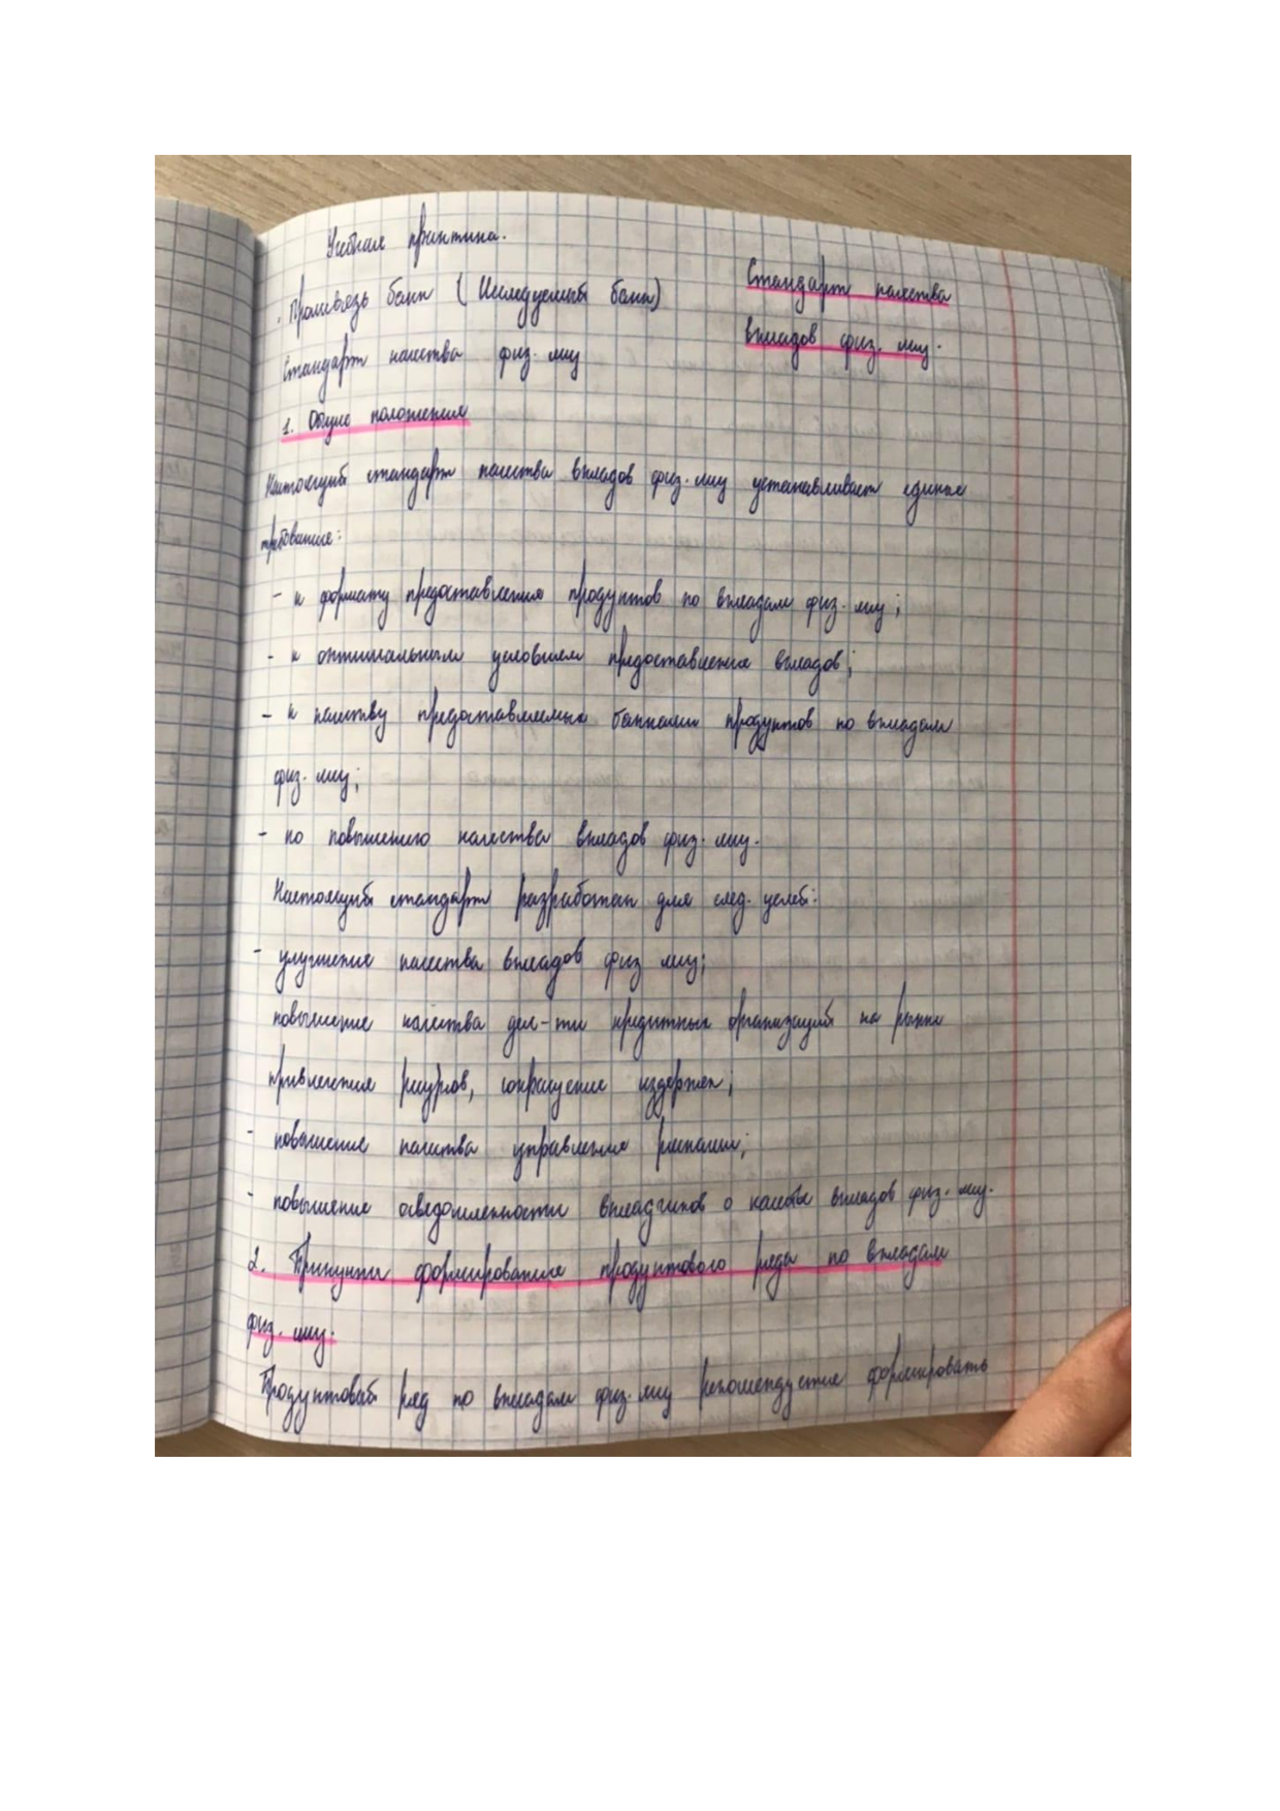 Учебная практика.
Промсвязь банк (Исследуемый банк)
Стандарт качества
вкладов физ. лиц.
Стандарт качества физ. лиц
1. Общие положения
Настоящий стандарт качества вкладов физ. лиц устанавливает единые
требование:
- к формату предоставления продуктов по вкладам физ. лиц;
- к оптимальным условиям предоставления вкладов;
- к качеству предоставляемых банками продуктов по вкладам
физ. лиц;
- по повышению качества вкладов физ. лиц.
Настоящий стандарт разработан для след. целей:
- улучшение качества вкладов физ лиц;
повышение качества деят-ти кредитных организаций на рынке
привлечения ресурсов, сокращение издержек;
- повышение качества управления рисками;
- повышение осведомленности вкладчиков о качестве вкладов физ. лиц.
2. Принципы формирование продуктового ряда по вкладам
физ. лиц.
Продуктовый ряд по вкладам физ. лиц рекомендуется формировать